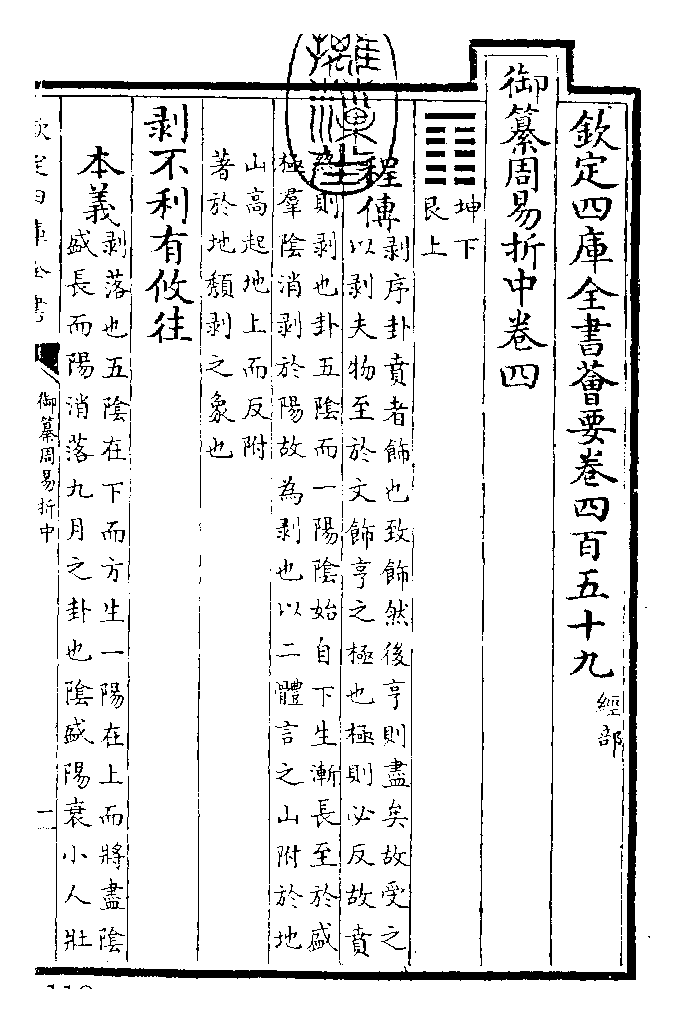 欽定四庫全書薈要卷四百五十九 經部
御纂周易折中卷四
坤下
艮上
程傳
剥序卦賁者飾也致飾然後亨則盡矣故受之
以剥夫物至於文飾亨之極也極則必反故賁
則剥也卦五陰而一陽陰始自下生漸長至於盛
極羣陰消剥於陽故為剥也以二體言之山附於地
山高起地上而反附
著於地頽剥之象也
剥不利有攸往
本義
剥落也五陰在下而方生一陽在上而將盡陰
盛長而陽消落九月之卦也陰盛陽衰小人壯
欽定四庫全書
御纂周易折中
一